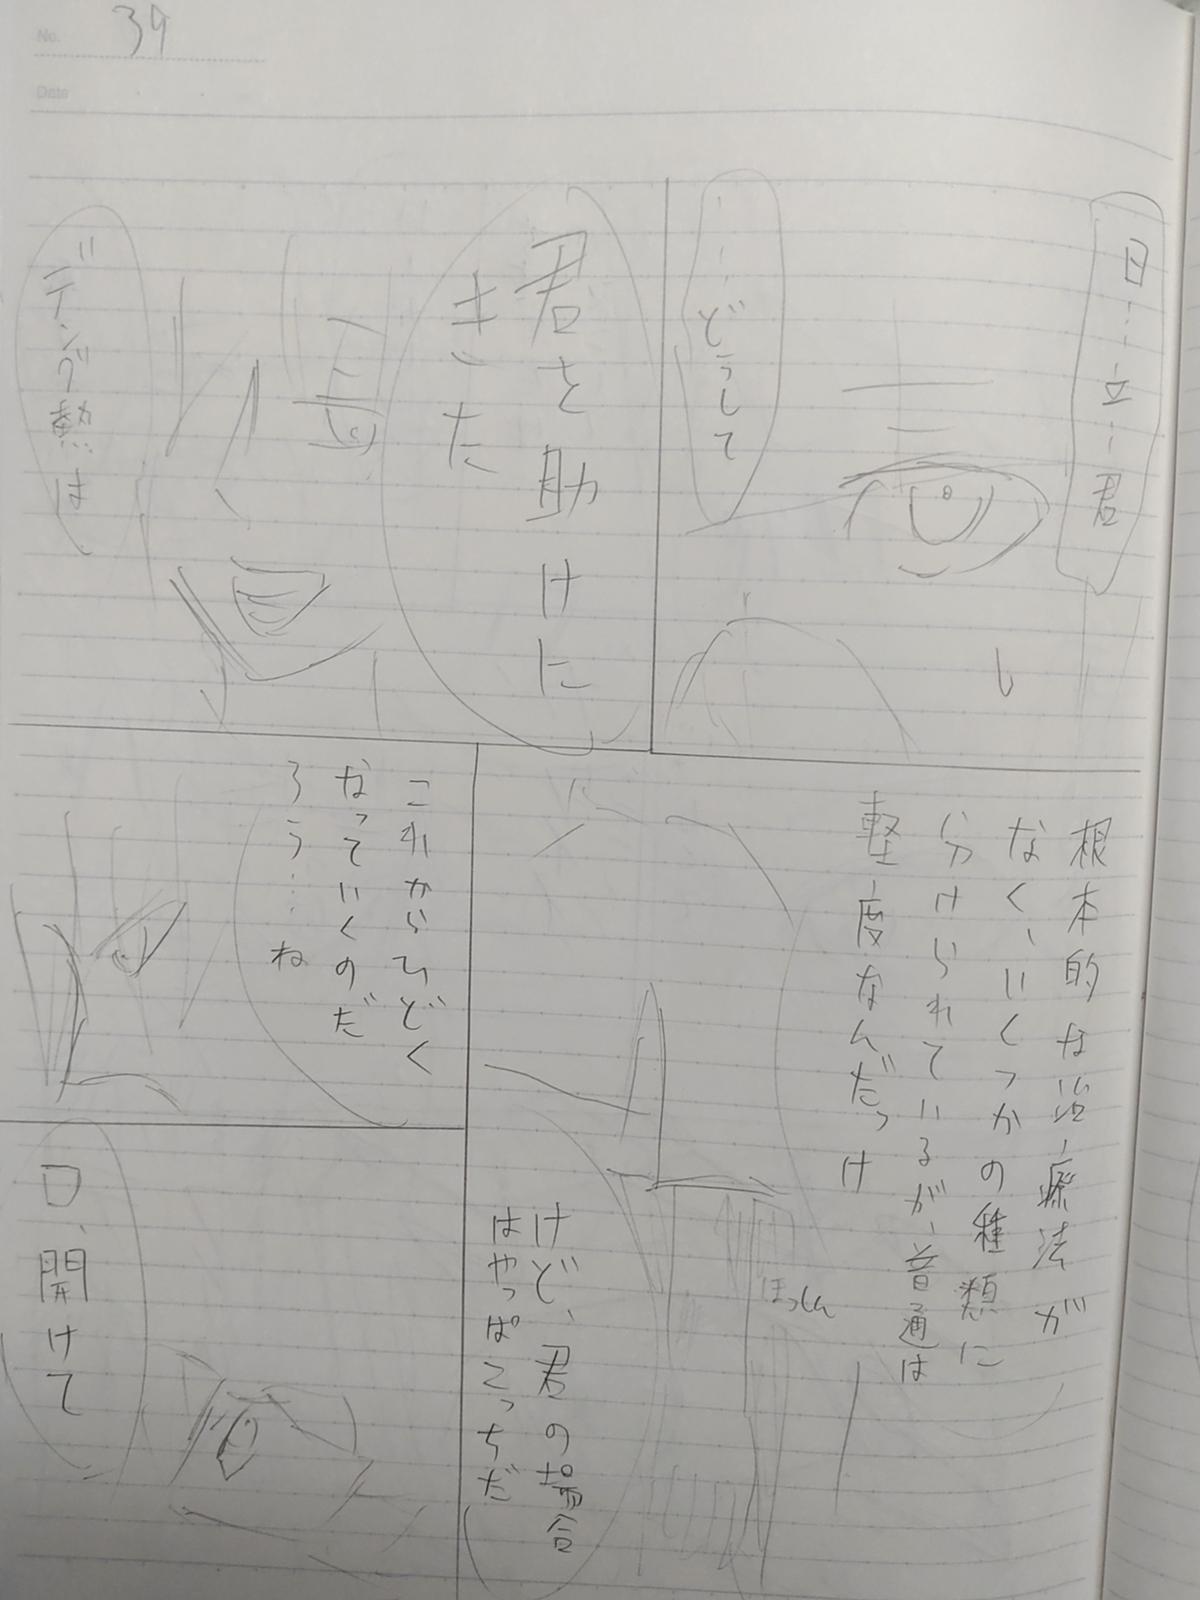 No. 39
Date
日……立……君
……どうして
君を助けに
きた
デング熱は
根本的な治療法が
なく、いくつかの種類に
分けられているが、普通は
軽度なんだっけ
ほっしん
けど、君の場合
はやっぱこっちだ
これからひどく
なっていくのだ
ろう…ね
口、開けて